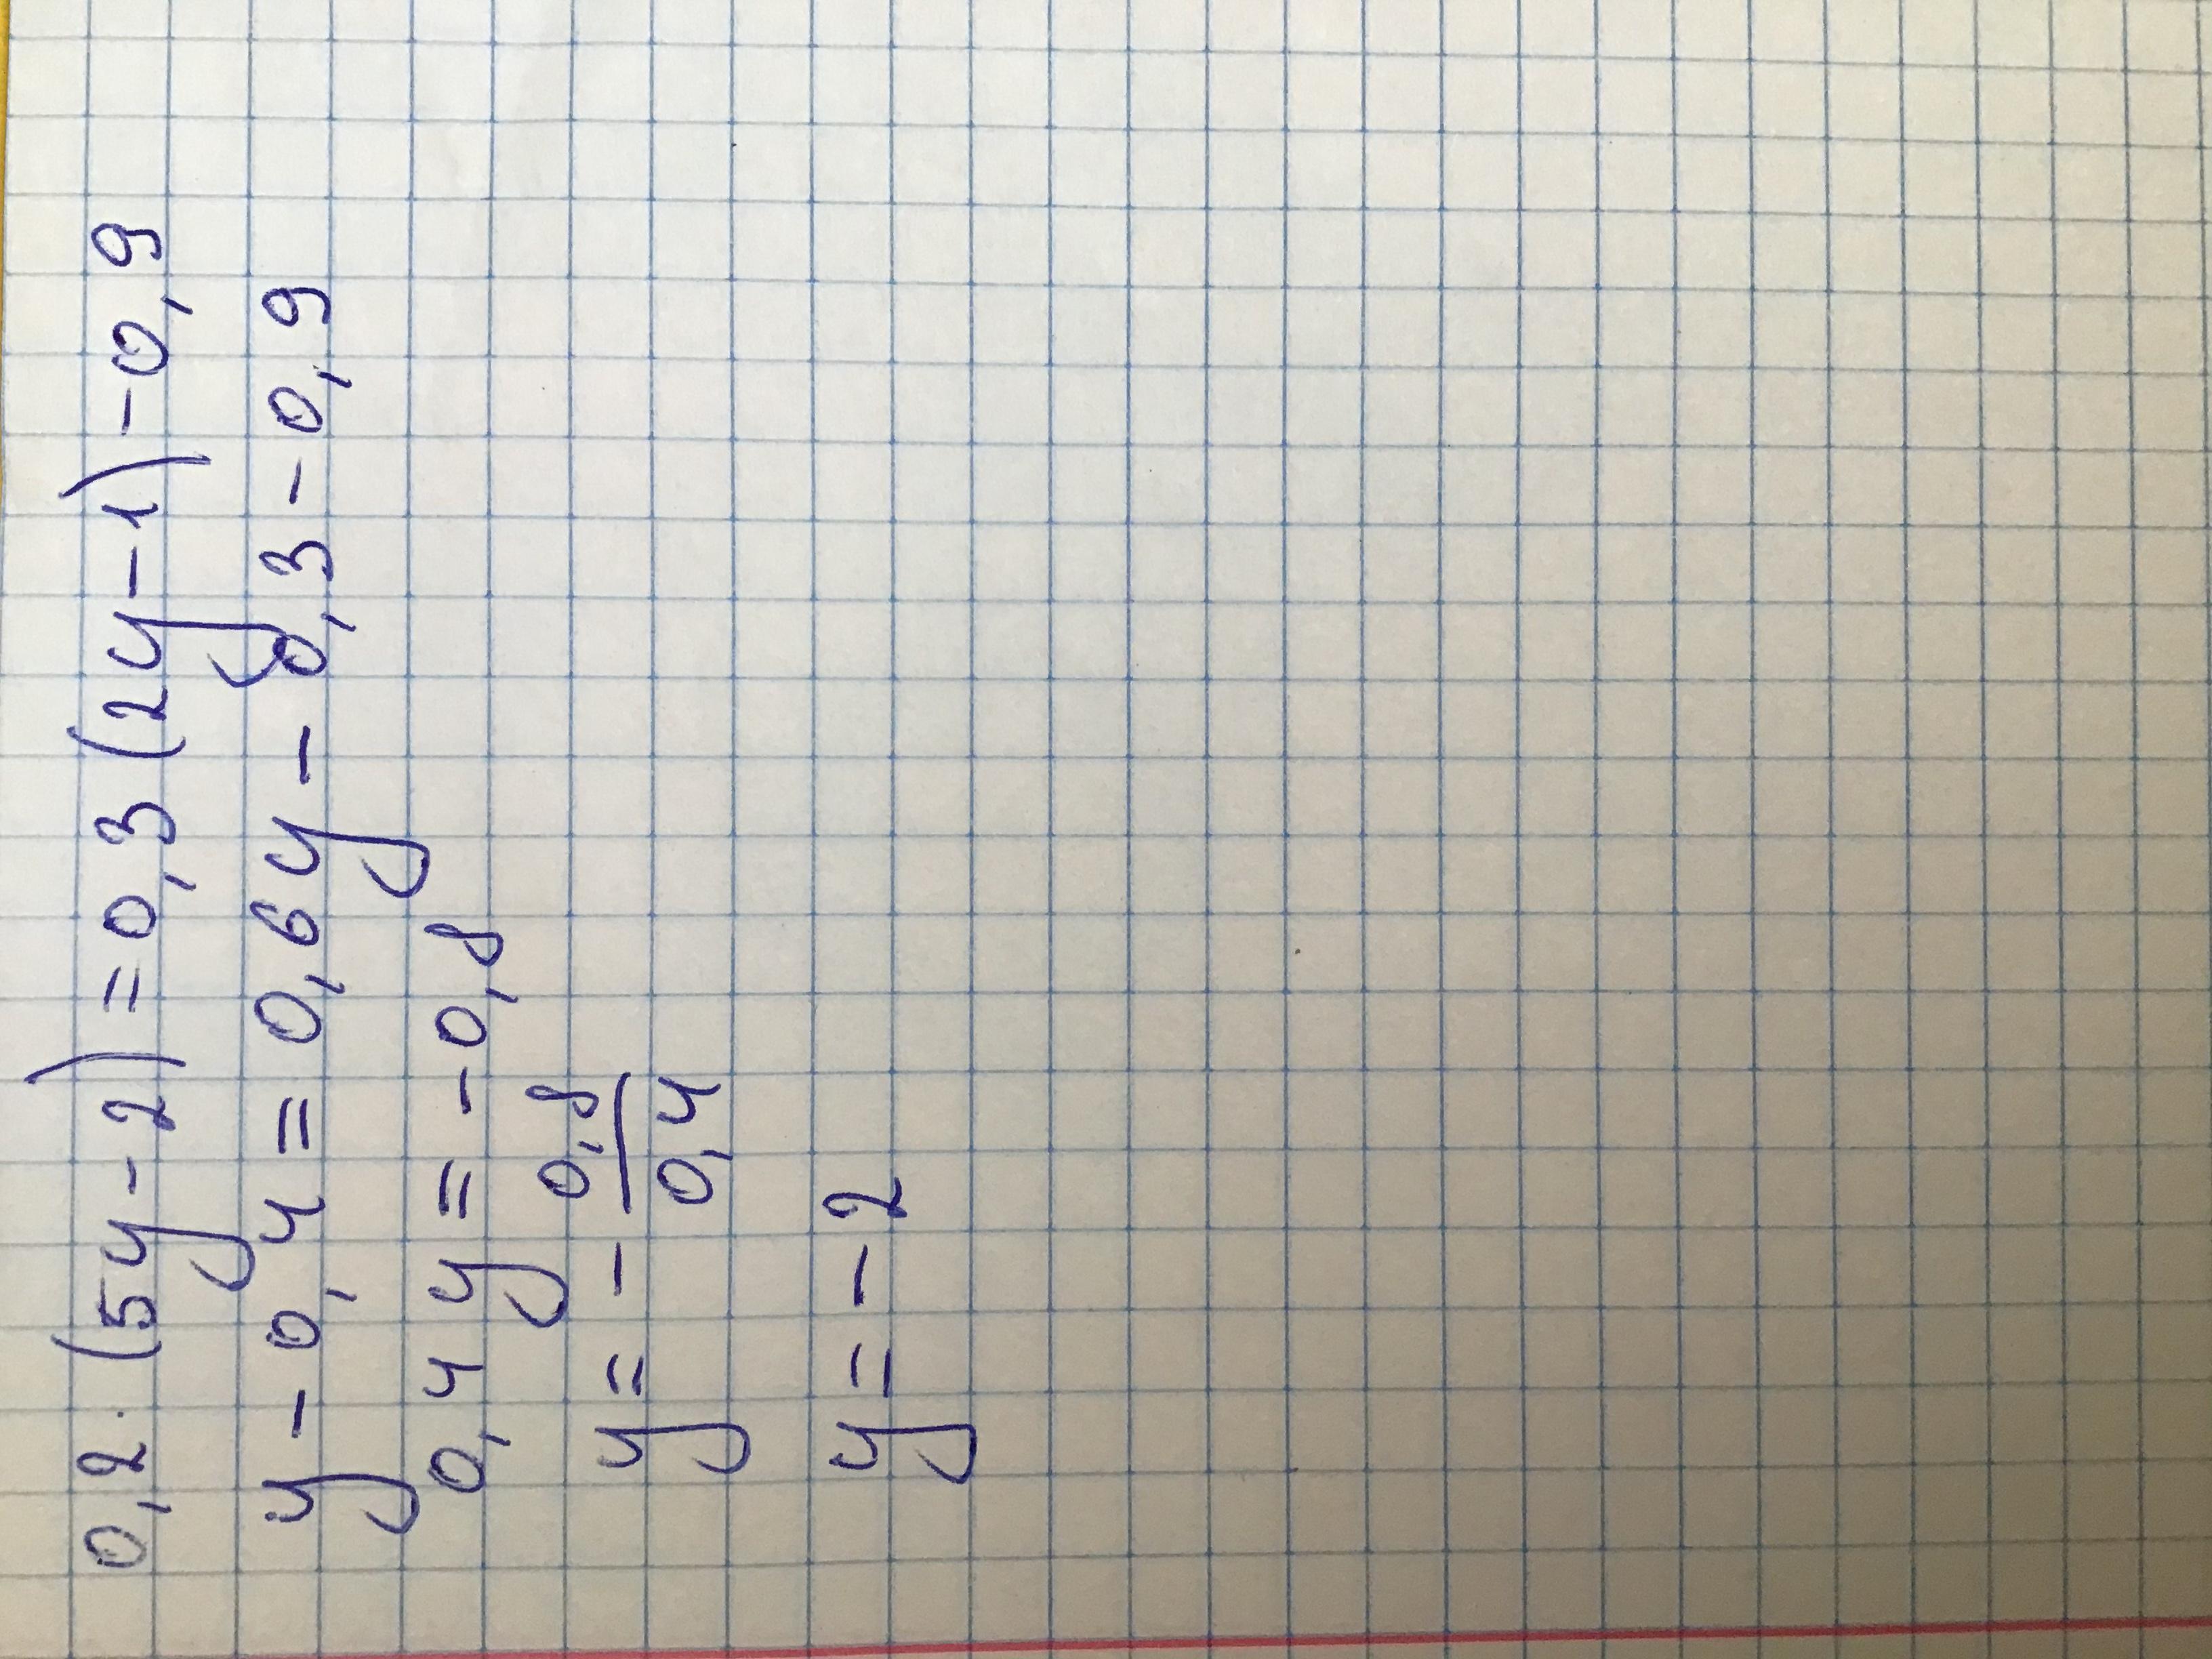 0,2 · (5y - 2) = 0,3 (2y - 1) - 0,9
y - 0,4 = 0,6y - 0,3 - 0,9
0,4y = -0,8
y = - 0,8/0,4
y = - 2